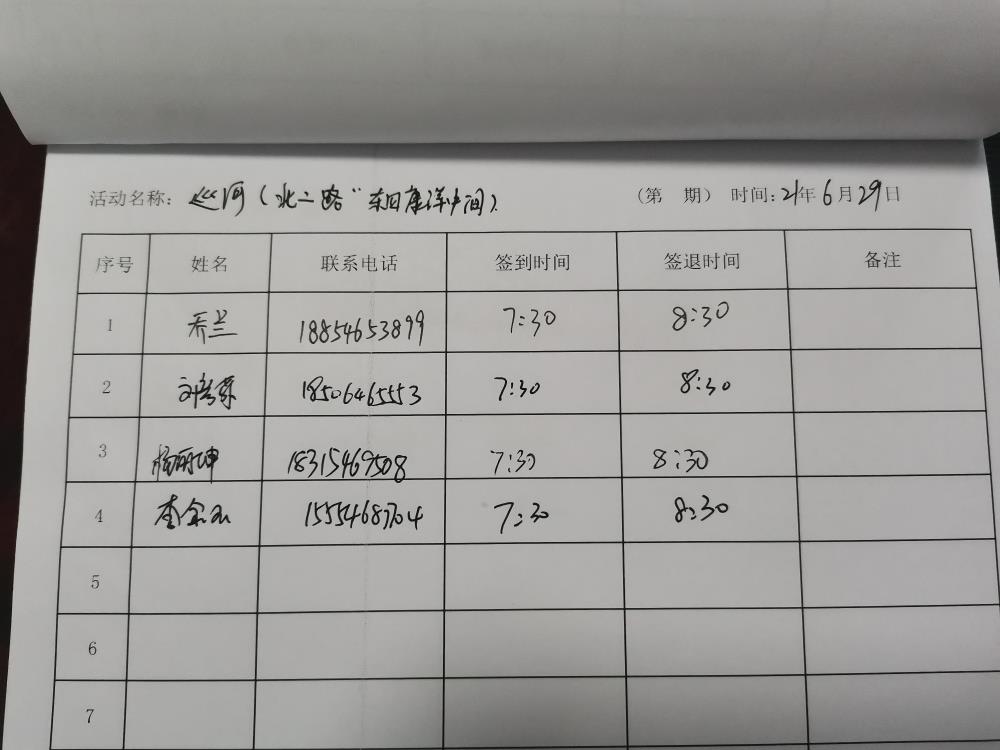 活动名称: 巡河(北二路"东田康洋中间) (第 期) 时间:21年6月29日
序号 姓名 联系电话 签到时间 签退时间 备注
1 乔兰 18854653899 7:30 8:30
2 18506465553 7:30 8:30
3 杨丽坤 18315469508 7:30 8:30
4 李金玉 15554687704 7:30 8:30
5
6
7